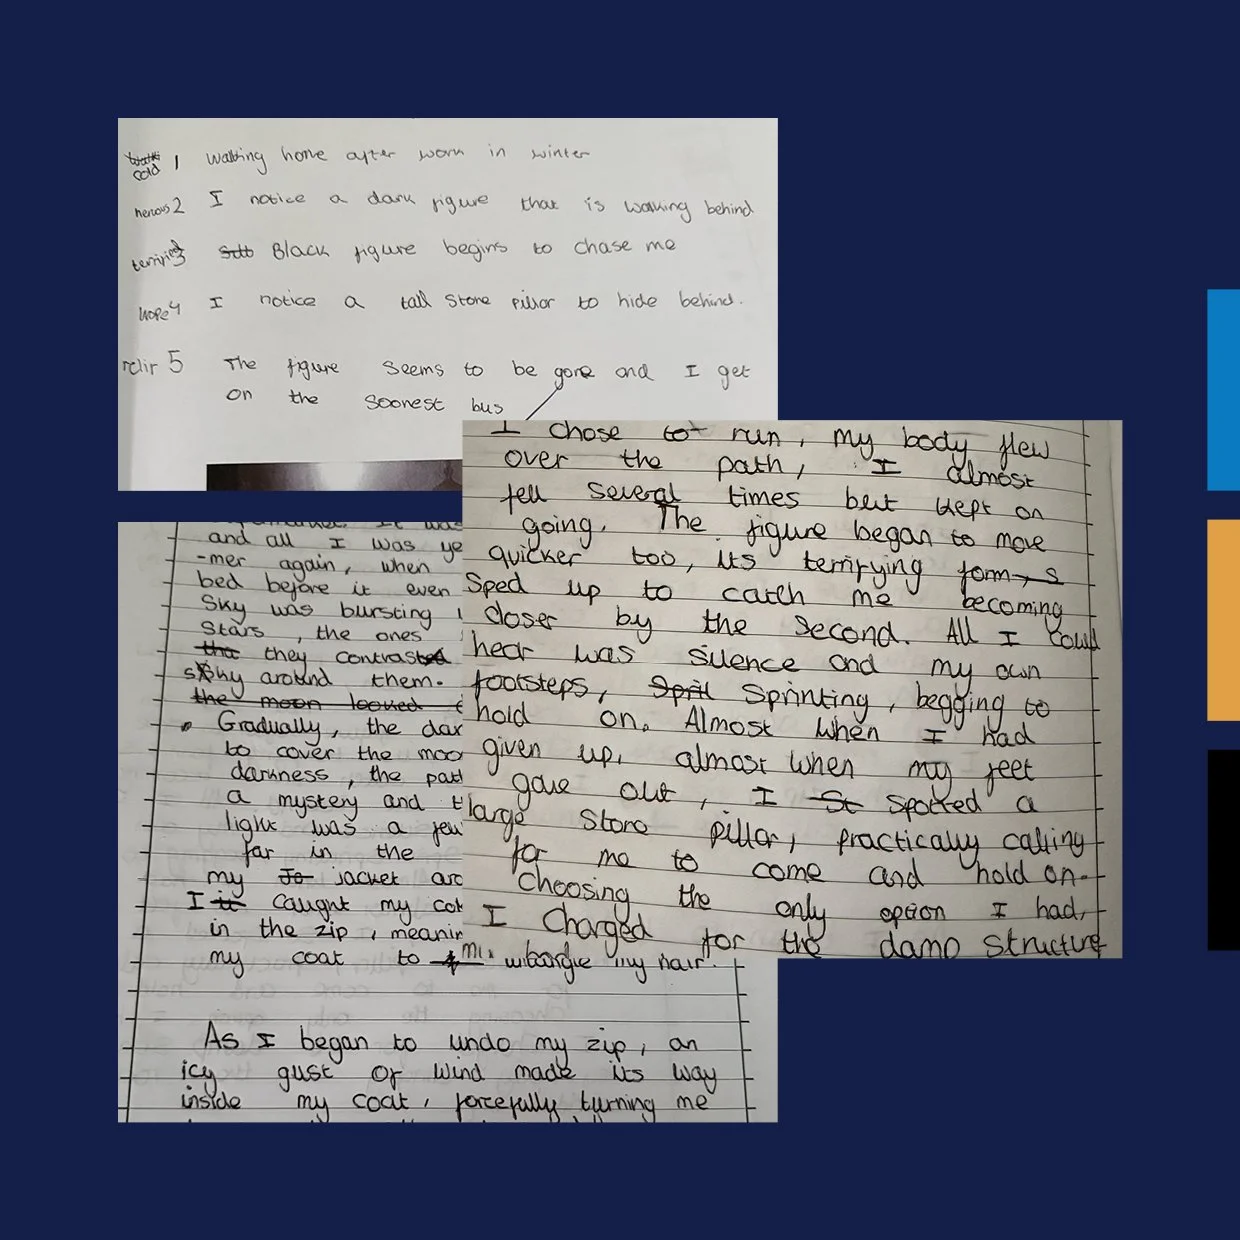 cold 1 walking home after work in winter
nervous 2 I notice a dark figure that is walking behind
terrified 3 Black figure begins to chase me
hope 4 I notice a tall stone pillar to hide behind.
5 The figure seems to be gone and I get
on the soonest bus
I chose to run, my body flew
over the path, I almost
fell several times but kept on
going. The figure began to move
quicker too, its terrifying form
sped up to catch me becoming
closer by the second. All I could
hear was silence and my own
footsteps, sprinting, begging to
hold on. Almost when I had
given up, almost when my feet
gave out, I spotted a
large stone pillar, practically calling
for me to come and hold on.
Choosing the only option I had,
I charged for the damp structure
It was
and all I was
-mer again, when
bed before it even
sky was bursting
stars, the ones
they contrasted
sky around them.
the moon looked
Gradually, the
to cover the
darkness, the
a mystery and
light was a
far in the
my jacket
I caught my
in the zip,
my coat to my hair.
As I began to undo my zip, an
icy gust of wind made its way
inside my coat, forcefully turning me